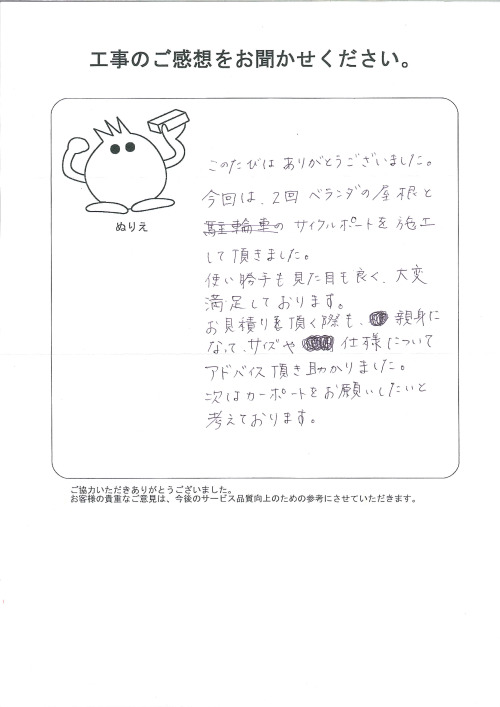 工事のご感想をお聞かせください。
ぬりえ
このたびは ありがとうございました。
今回は、2回 ベランダの屋根と
駐輪車の サイクルポートを 施工
して頂きました。
使い勝手も見た目も良く、大変
満足しております。
お見積りを頂く際も、親身に
なって、サイズや 仕様について
アドバイス頂き助かりました。
次はカーポートをお願いしたいと
考えております。
ご協力いただきありがとうございました。
お客様の貴重なご意見は、今後のサービス品質向上のための参考にさせていただきます。